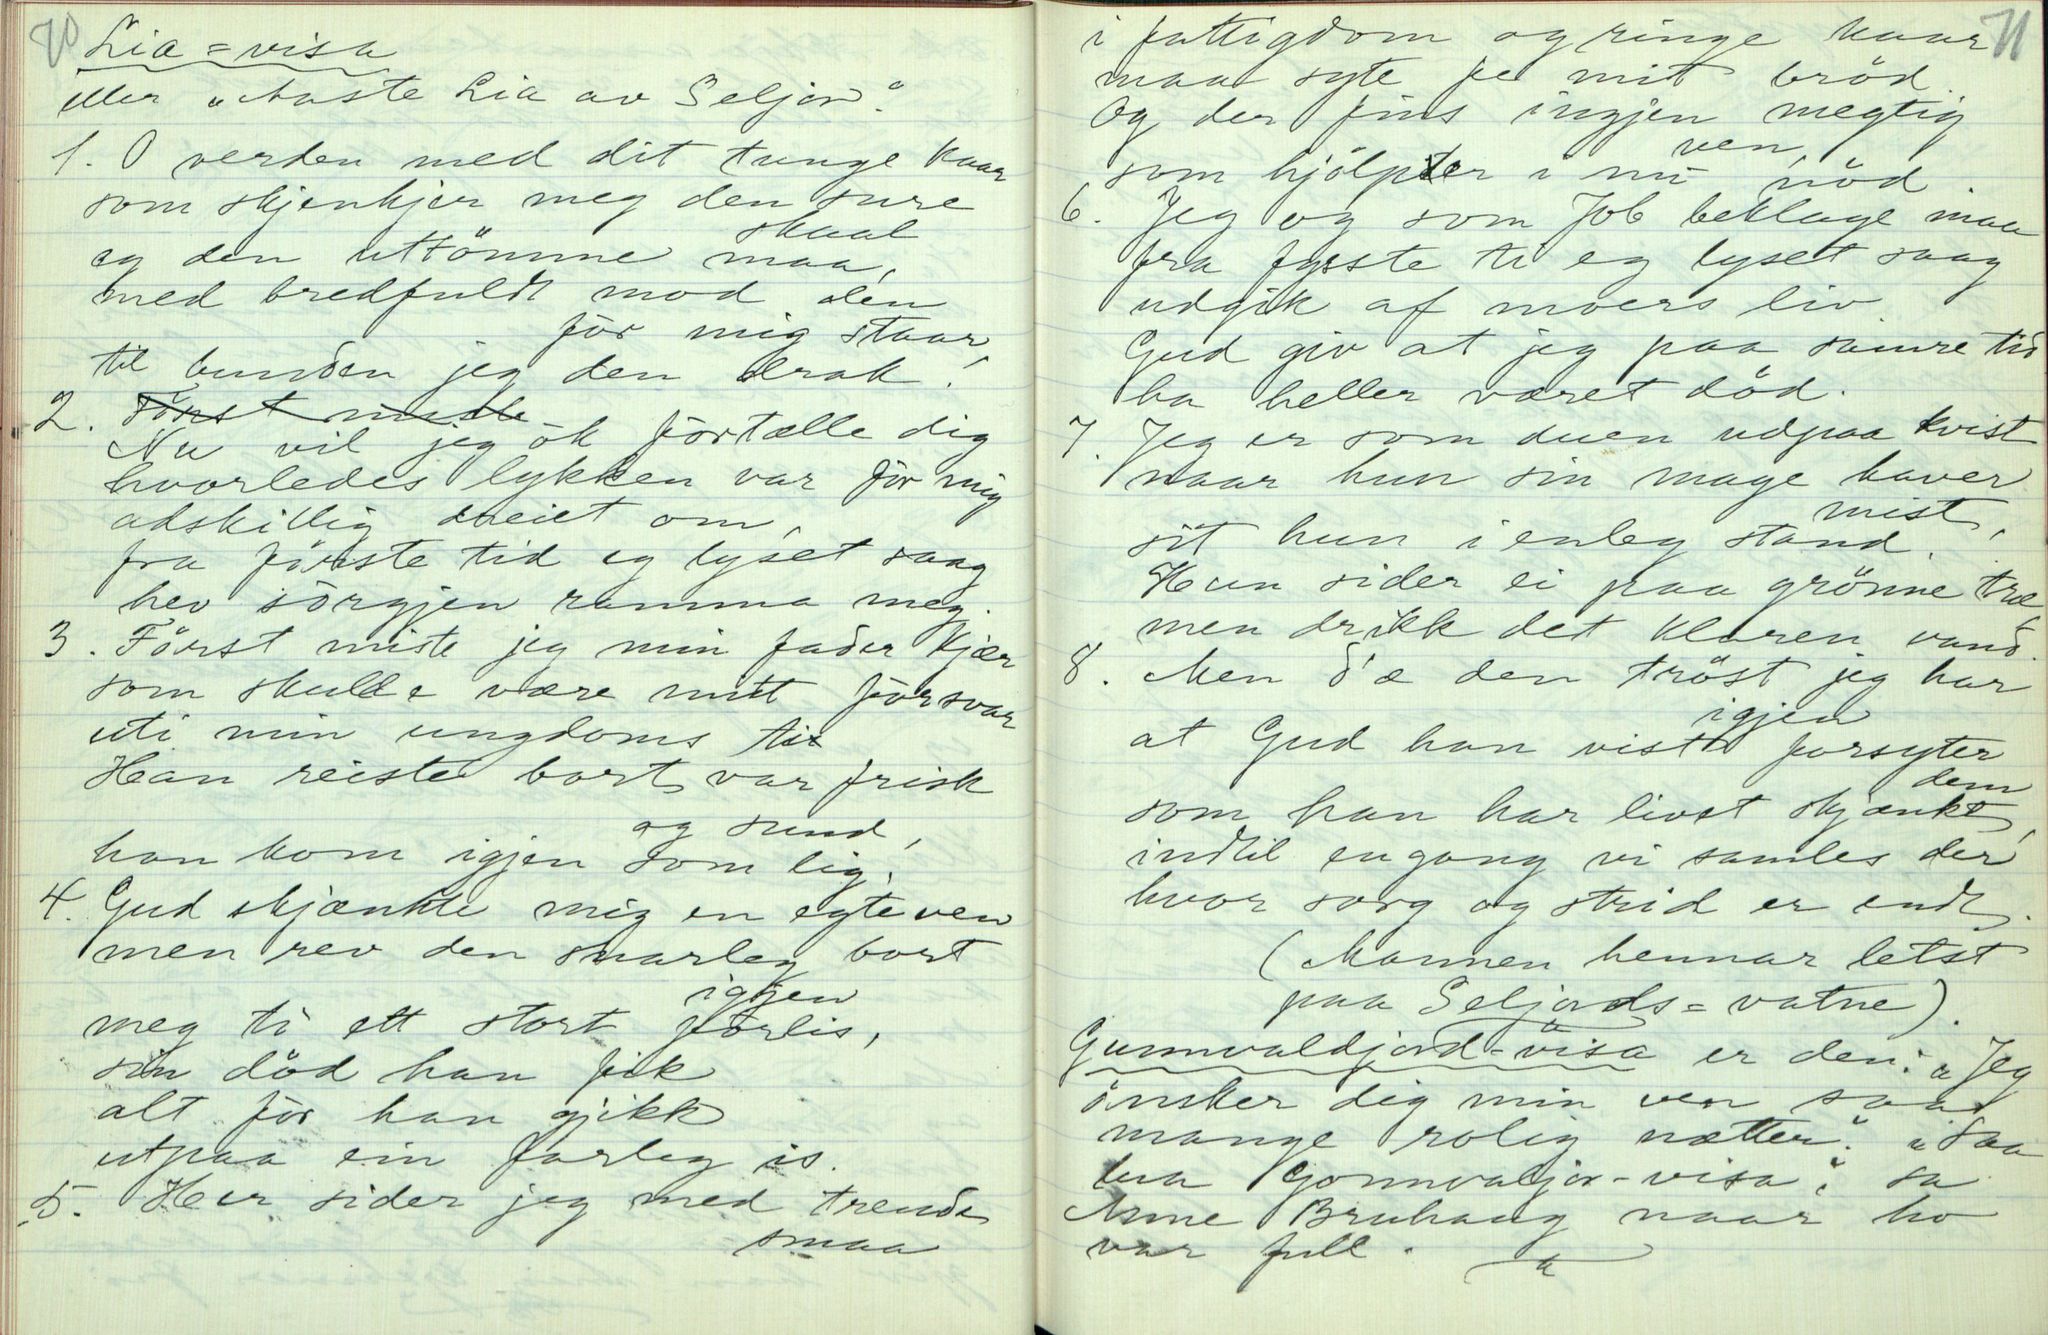 70
Lia = visa
eller „Aaste Lia av Seljor."
1. O verden med dit tunge kaar
som skjenkjer meg den sure
skaal
eg den uttömme maa,
med bredfuldt mod den
för mig staar,
til bunden jeg den drak!
2. Först miste
Nu vil jeg ök fortælle dig
hvorledes lykken var för mig
adskillig dreiet om,
fra förste tid eg lyset saag
hev sörgjen ramma meg.
3. Först miste jeg min fader kjær
som skulde være mitt forsvar
uti min ungdoms tid
Han reiste bort var frisk
og sund,
han kom igjen som lig.
4. Gud skjænkte mig en egte ven
men rev den snarleg bort
igjen
meg ti ett stort forlis,
sin död han fik
alt för han gjikk
utpaa ein farleg is.
5. Her sider jeg med trende
smaa
71
i fattigdom og ringe kaar
maa syte fe mit bröd.
Og der fins ingjen megtig
ven
som hjölper i mi nöd.
6. Jeg og som Job beklage maa
fra fysste ti eg lyset saag
udgik af moers liv.
Gud giv at jeg paa samre tid
ha heller været död.
7. Jeg er som duen udpaa kvist
naar hun sin mage haver
mist,
sit hun i enleg stand.
Hun sider ei paa grönne træ
men drikk det klaren vand.
8. Men d'æ den tröst jeg har
igjen
at Gud han vist forsyter
dem
som han har livet skjænkt,
indtil engang vi samles der
hvor sorg og strid er endt.
(Mannen hennar letst
paa Seljords = vatne).
Gunnvaldjord-visa er den: „Jeg
önsker dig min ven saa
mange rolig nætter". „Saa
lua Gonnvaljor-visa", sa
Anne Bruhaug naar ho
var full.